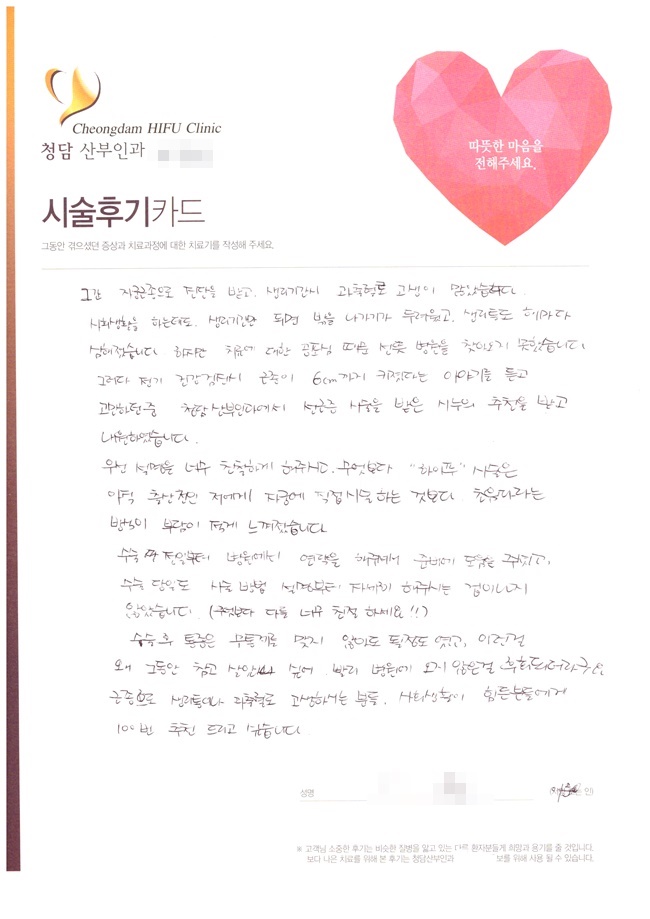 Cheongdam HIFU Clinic
청담 산부인과
따뜻한 마음을
전해주세요.
시술후기카드
그동안 겪으셨던 증상과 치료과정에 대한 치료기를 작성해 주세요.
그간 자궁근종으로 진단을 받고, 생리기간시 과출혈로 고생이 많았습니다.
사회생활을 하는데도, 생리기간만 되면 밖을 나가기가 두려웠고, 생리통도 해마다
심해졌습니다. 하지만 치료에 대한 공포심 때문 선뜻 병원을 찾아오기 못했습니다
그러다 정기 건강검진시 근종이 6cm까지 커졌다는 이야기를 듣고
고민하던중 청담산부인과에서 선근증 시술을 받은 시누의 추천을 받고
내원하였습니다.
우선 설명을 너무 친절하게 해주시고, 무엇보다 "하이푸" 시술은
아직 출산전인 저에게 자궁에 직접시술하는 것보다 초음파라는
방식이 부담이 적게 느껴졌습니다
수술 전일부터 병원에서 연락을 해주셔서 준비에 도움을 주시고,
수술 당일도 시술 방법 설명부터 자세히 해주시는 겁이나지
않았습니다. (무엇보다 다들 너무 친절하세요!!)
수술 후 통증은 무통주사를 맞지 않아도 될정도 였고, 이런걸
왜 그동안 참고 살았나 싶어 빨리 병원에 오지 않은걸 후회되더라구요
근종으로 생리통이나 과출혈로 고생하시는 분들, 사회생활이 힘든분들에게
100번 추천 드리고 싶습니다.
성명
인)
※ 고객님 소중한 후기는 비슷한 질병을 앓고 있는 다른 환자분들게 희망과 용기를 줄 것입니다.
보다 나은 치료를 위해 본 후기는 청담산부인과 보를 위해 사용 될 수 있습니다.